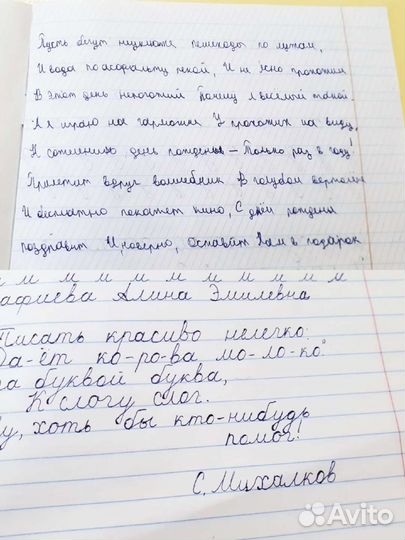 Пусть бегут неуклюже пешеходы по лужам,
И вода по асфальту рекой, И не ясно прохожим
В этот день непогожий Почему я веселый такой.
А я играю на гармошке У прохожих на виду,
К сожалению день рожденья – Только раз в году!
Прилетит вдруг волшебник В голубом вертолете
И бесплатно покажет кино, С днём рождения
поздравит И, наверно, оставит Нам в подарок
м м м м м м м м м м
афиева Алина Эмилевна
Писать красиво нелегко:
Да-ёт ко-ро-ва мо-ло-ко.
за буквой буква,
К слогу слог.
у, хоть бы кто-нибудь
помог!
С. Михалков
Avito